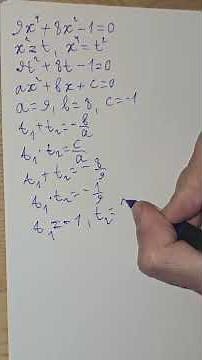 9x⁴+8x²-1=0
x²=t, x⁴=t²
9t²+8t-1=0
ax²+bx+c=0
a=9, b=8, c=-1
t₁+t₂=-b/a
t₁·t₂=c/a
t₁+t₂=-8/9
t₁·t₂=-1/9
t₁=-1, t₂=